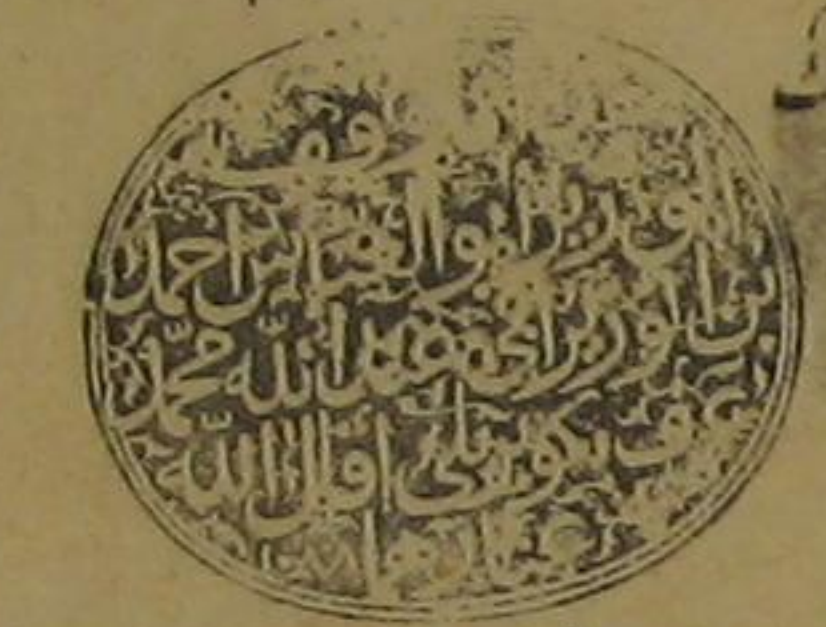 وقفه
الوزير ابو العباس احمد
بن الوزير ابي عبد الله محمد
عرف بكوپريلي اقال الله
عثارهما